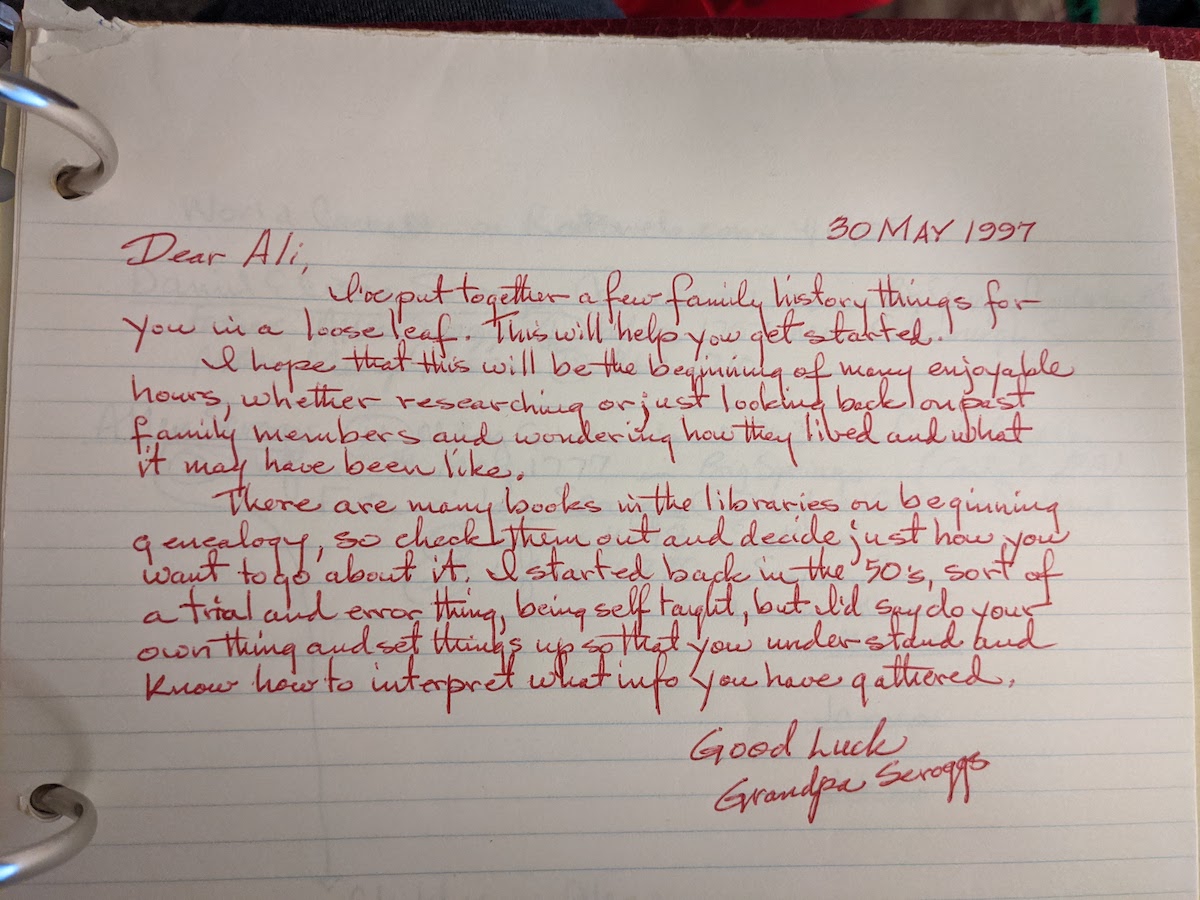 30 MAY 1997
Dear Ali,
I've put together a few family history things for
you in a loose leaf. This will help you get started.
I hope that this will be the beginning of many enjoyable
hours, whether researching or just looking back on past
family members and wondering how they lived and what
it may have been like.
There are many books in the libraries on beginning
genealogy, so check them out and decide just how you
want to go about it. I started back in the '50's, sort of
a trial and error thing, being self taught, but I'd say do your
own thing and set things up so that you understand and
know how to interpret what info you have gathered.
Good Luck
Grandpa Scroggs